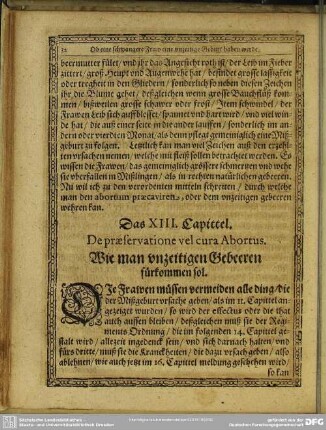 52 Ob eine schwangere Fraw eine vnzeitige Geburt haben werde.
beermutter fület/ vnd jhr das Angesicht roth ist/ der Leib im Fieber
zittert/ groß Heupt vnd Augenwehe hat/ befindet grosse lassigkeit
oder tregheit in den Gliedern/ sonderlich so neben diesen Zeichen
jhr die Blume gehet/ deßgleichen wenn grosse Bauchflüß kom-
men/ bißweilen grosse schawer oder frost/ Item schwindel/ der
Frawen Leib sich auffblöset/ spannet vnd hart wird/ vnd viel win-
de hat/ die auß einer seite in die ander lauffen/ sonderlich im an-
dern oder vierdten Monat/ als denn pflegt gemeiniglich eine Miß-
geburt zu folgen. Letzlich kan man viel Zeichen auß den erzehl-
ten vrsachen nemen/ welche mit fleiß sollen betrachtet werden. Es
wissen die Frawen/ das gemeiniglich grössere schmertzen vnd wehe
sie oberfallen in Mißlingen/ als in rechten natürlichen geberen.
Nu wil ich zu den verordneten mitteln schreiten/ durch welche
man den abortum præcaviren/ oder dem vnzeitigen geberen
wehren kan.
Das XIII. Capittel.
De præservatione vel cura Abortus.
Wie man vnzeitigen Gebeeren
fürkommen sol.
DIe Frawen müssen vermeiden alle ding/ die
der Mißgeburt vrsache geben/ als im 11. Capittel an-
gezeigt wurden/ so wird der effectus oder die that
auch aussen bleiben/ deßgleichen muß sie der Regi-
ments Ordnung/ die im folgenden 14. Capittel ge-
stalt wird/ allezeit ingedenck sein/ vnd sich darnach halten/ vnd
fürs dritte/ muß sie die Kranckheiten/ die dazu vrsach geben/ also
ablehnen/ wie auch jetzt im 16. Capittel meldung geschehen wird/
so kan
Sächsische Landesbibliothek
Staats- und Universitätsbibliothek Dresden
gefördert von der
Deutschen Forschungsgemeinschaft
DFG